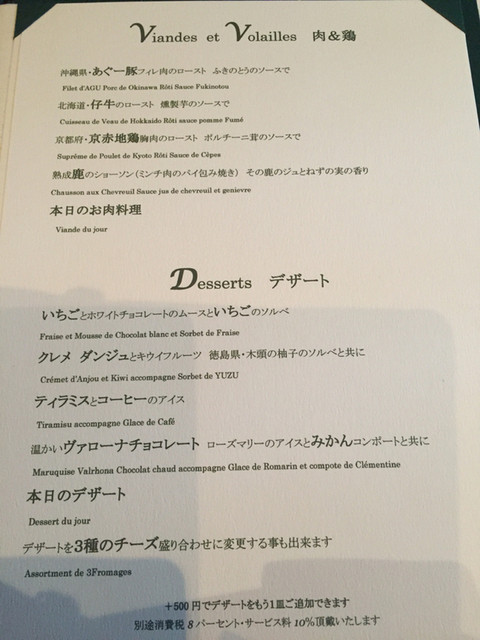 Viandes et Volailles 肉＆鶏
沖縄県・あぐー豚フィレ肉のロースト ふきのとうのソースで
Filet d'AGU Porc de Okinawa Rôti Sauce Fukinotou
北海道・仔牛のロースト 燻製芋のソースで
Cuisseau de Veau de Hokkaido Rôti sauce pomme Fumé
京都府・京赤地鶏胸肉のロースト ポルチーニ茸のソースで
Suprême de Poulet de Kyoto Rôti Sauce de Cèpes
熟成鹿のショーソン（ミンチ肉のパイ包み焼き） その鹿のジュとねずの実の香り
Chausson aux Chevreuil Sauce jus de chevreuil et genievre
本日のお肉料理
Viande du jour
Desserts デザート
いちごとホワイトチョコレートのムースといちごのソルベ
Fraise et Mousse de Chocolat blanc et Sorbet de Fraise
クレメ ダンジュとキウイフルーツ 徳島県・木頭の柚子のソルベと共に
Crémet d'Anjou et Kiwi accompagne Sorbet de YUZU
ティラミスとコーヒーのアイス
Tiramisu accompagne Glace de Café
温かいヴァローナチョコレート ローズマリーのアイスとみかんコンポートと共に
Maruquise Valrhona Chocolat chaud accompagne Glace de Romarin et compote de Clémentine
本日のデザート
Dessert du jour
デザートを3種のチーズ盛り合わせに変更する事も出来ます
Assortment de 3Fromages
＋500円でデザートをもう1皿ご追加できます
別途消費税 8 パーセント・サービス料 10%頂戴いたします